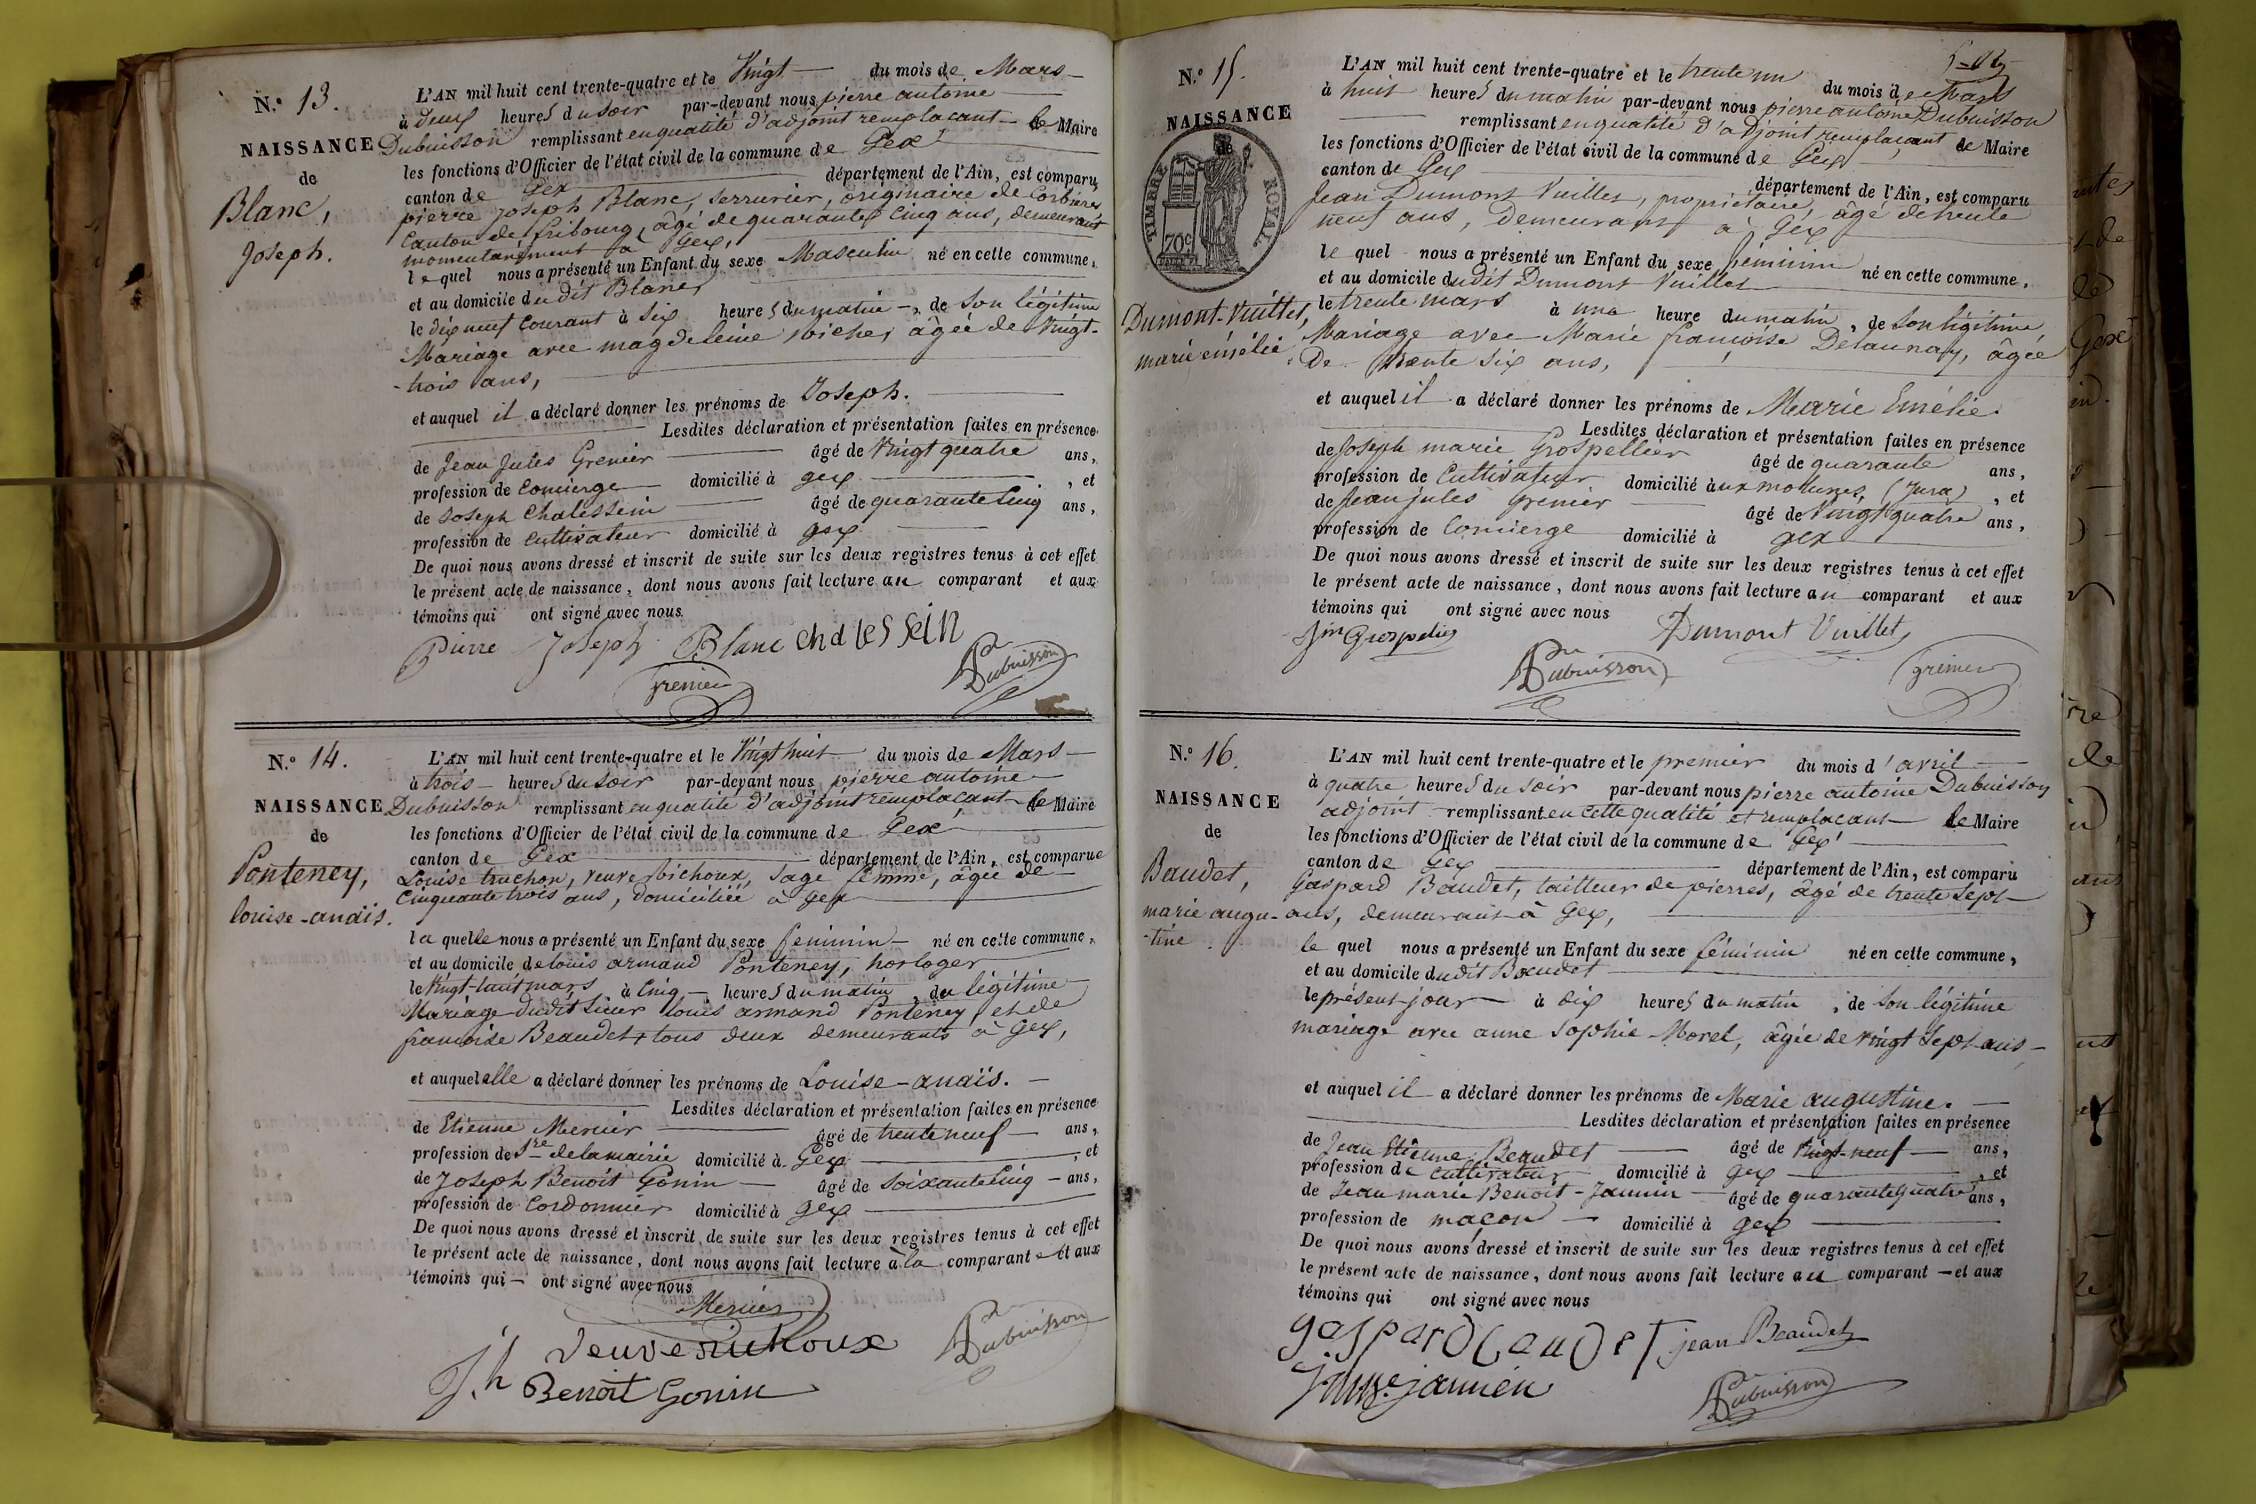 N.° 13.
NAISSANCE
de
Blanc,
Joseph.
L'AN mil huit cent trente-quatre et le Vingt du mois de Mars
à deux heures du soir par-devant nous pierre antoine
Dubuisson remplissant en qualité d'adjoint remplaçant le Maire
les fonctions d'Officier de l'état civil de la commune de Gex
canton de Gex département de l'Ain, est comparu
pierre Joseph Blanc, serrurier, originaire de Corbières
Canton de fribourg, âgé de quarante cinq ans, demeurant
momentanément à Gex,
le quel nous a présenté un Enfant du sexe Masculin né en cette commune,
et au domicile dudit Blanc,
le dix neuf courant à six heures du matin, de son légitime
Mariage avec magdeleine age de Vingt-
trois ans,
et auquel il a déclaré donner les prénoms de Joseph.
Lesdites déclaration et présentation faites en présence
de Jean Jules Grenier âgé de Vingt quatre ans,
profession de Concierge domicilié à gex, et
de Joseph Chalessein âgé de quarante Cinq ans,
profession de Cultivateur domicilié à gex
De quoi nous avons dressé et inscrit de suite sur les deux registres tenus à cet effet
le présent acte de naissance, dont nous avons fait lecture au comparant et aux
témoins qui ont signé avec nous
Pierre Joseph Blanc chalessein
grenier Dubuisson
N.° 14.
NAISSANCE
de
Ponteney,
louise-anaïs.
L'AN mil huit cent trente-quatre et le Vingt huit du mois de Mars
à trois heures du soir par-devant nous pierre antoine
Dubuisson remplissant en qualité d'adjoint remplaçant le Maire
les fonctions d'Officier de l'état civil de la commune de Gex
canton de Gex département de l'Ain, est comparue
Louise truchon, veuve bichoux, sage femme, âgée de
Cinquante trois ans, domiciliée à gex
la quelle nous a présenté un Enfant du sexe féminin né en cette commune,
et au domicile de louis armand Ponteney, horloger
le Vingt-huit mars à Cinq heures du matin, du légitime
Mariage dudit sieur louis armand Ponteney et de
françoise Beaudet tous deux demeurants à Gex,
et auquel elle a déclaré donner les prénoms de Louise-anaïs.
Lesdites déclaration et présentation faites en présence
de Etienne Mercier âgé de trente neuf ans,
profession de S.re de la mairie domicilié à Gex, et
de Joseph Benoit Gonin âgé de soixante Cinq ans,
profession de Cordonnier domicilié à gex
De quoi nous avons dressé et inscrit de suite sur les deux registres tenus à cet effet
le présent acte de naissance, dont nous avons fait lecture à la comparante et aux
témoins qui ont signé avec nous
Mercier
veuve Dubuisson
J.h Benoit Gonin
N.° 15.
NAISSANCE
de
TIMBRE ROYAL
70c
Dumont-Vuillet,
marie emélie.
L'AN mil huit cent trente-quatre et le trente un du mois de Mars
à huit heures du matin par-devant nous pierre antoine Dubuisson
remplissant en qualité d'adjoint remplaçant le Maire
les fonctions d'Officier de l'état civil de la commune de Gex
canton de Gex département de l'Ain, est comparu
Jean Dumont Vuillet, propriétaire, âgé de trente
neuf ans, demeurant à Gex
le quel nous a présenté un Enfant du sexe féminin né en cette commune,
et au domicile dudit Dumont Vuillet
le trente mars à une heure du matin, de son légitime
Mariage avec Marie françoise Delaunay, âgée
De trente six ans,
et auquel il a déclaré donner les prénoms de Marie Emélie.
Lesdites déclaration et présentation faites en présence
de Joseph marie Grospellier âgé de quarante ans,
profession de Cultivateur domicilié aux molunes, (Jura), et
de Jean jules Grenier âgé de Vingt quatre ans,
profession de Concierge domicilié à gex
De quoi nous avons dressé et inscrit de suite sur les deux registres tenus à cet effet
le présent acte de naissance, dont nous avons fait lecture au comparant et aux
témoins qui ont signé avec nous
Dumont Vuillet
Dubuisson grenier
N.° 16.
NAISSANCE
de
Baudet,
marie augu-
-tine.
L'AN mil huit cent trente-quatre et le premier du mois d'avril
à quatre heures du soir par-devant nous pierre antoine Dubuisson
adjoint remplissant en cette qualité et remplaçant le Maire
les fonctions d'Officier de l'état civil de la commune de Gex
canton de Gex département de l'Ain, est comparu
Gaspard Baudet, tailleur de pierres, âgé de trente sept
ans, demeurant à Gex,
le quel nous a présenté un Enfant du sexe féminin né en cette commune,
et au domicile dudit Baudet
le présent jour à dix heures du matin, de son légitime
mariage avec anne Sophie Morel, âgée de vingt sept ans,
et auquel il a déclaré donner les prénoms de Marie augustine.
Lesdites déclaration et présentation faites en présence
de Jean Etienne Beaudet âgé de Vingt-neuf ans,
profession de cultivateur domicilié à gex, et
de Jean marie Benoit-Jannin âgé de quarante quatre ans,
profession de maçon domicilié à gex
De quoi nous avons dressé et inscrit de suite sur les deux registres tenus à cet effet
le présent acte de naissance, dont nous avons fait lecture au comparant et aux
témoins qui ont signé avec nous
gaspard baudet jean Beaudet
Dubuisson